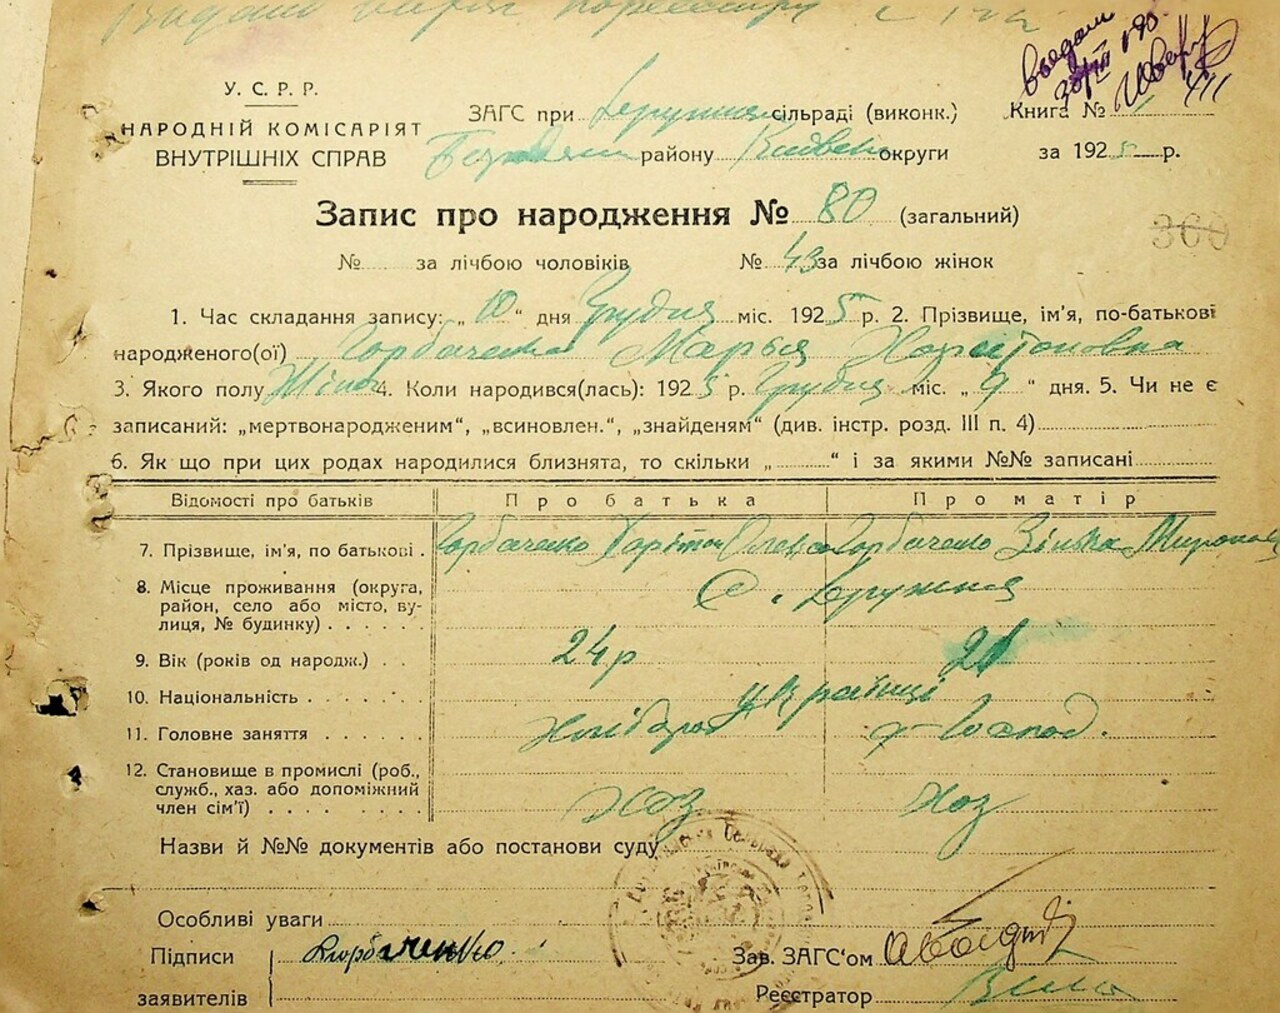 У. С. Р. Р.
НАРОДНІЙ КОМІСАРІЯТ
ВНУТРІШНІХ СПРАВ
ЗАГС при сільраді (виконк.)
району округи
Книга №
за 1925 р.
Запис про народження № 80 (загальний)
№ за лічбою чоловіків № 43 за лічбою жінок
360
1. Час складання запису: „10“ дня Грудня міс. 1925 р. 2. Прізвище, ім'я, по-батькові
народженого(ої) Горбаченко Марья Харитоновна
3. Якого полу Жіно 4. Коли народився(лась): 1925 р. Грудня міс. „9“ дня. 5. Чи не є
записаний: „мертвонародженим“, „всиновлен.“, „знайденям“ (див. інстр. розд. III п. 4)
6. Як що при цих родах народилися близнята, то скільки „ “ і за якими №№ записані
Відомості про батьків Про батька Про матір
7. Прізвище, ім'я, по батькові . Горбаченко Харитон Горбаченко Зінька
8. Місце проживання (округа,
район, село або місто, ву-
лиця, № будинку) . . . . . . С.
9. Вік (років од народж.) . . 24 р 21
10. Національність . . . . . . . українці
11. Головне заняття . . . . . . Хлібороб
12. Становище в промислі (роб.,
служб., хаз. або допоміжний
член сім'ї) . . . . . . . . . Хоз Хоз
Назви й №№ документів або постанови суду
Особливі уваги
Підписи Горбаченко Зав. ЗАГС'ом
заявителів Реєстратор